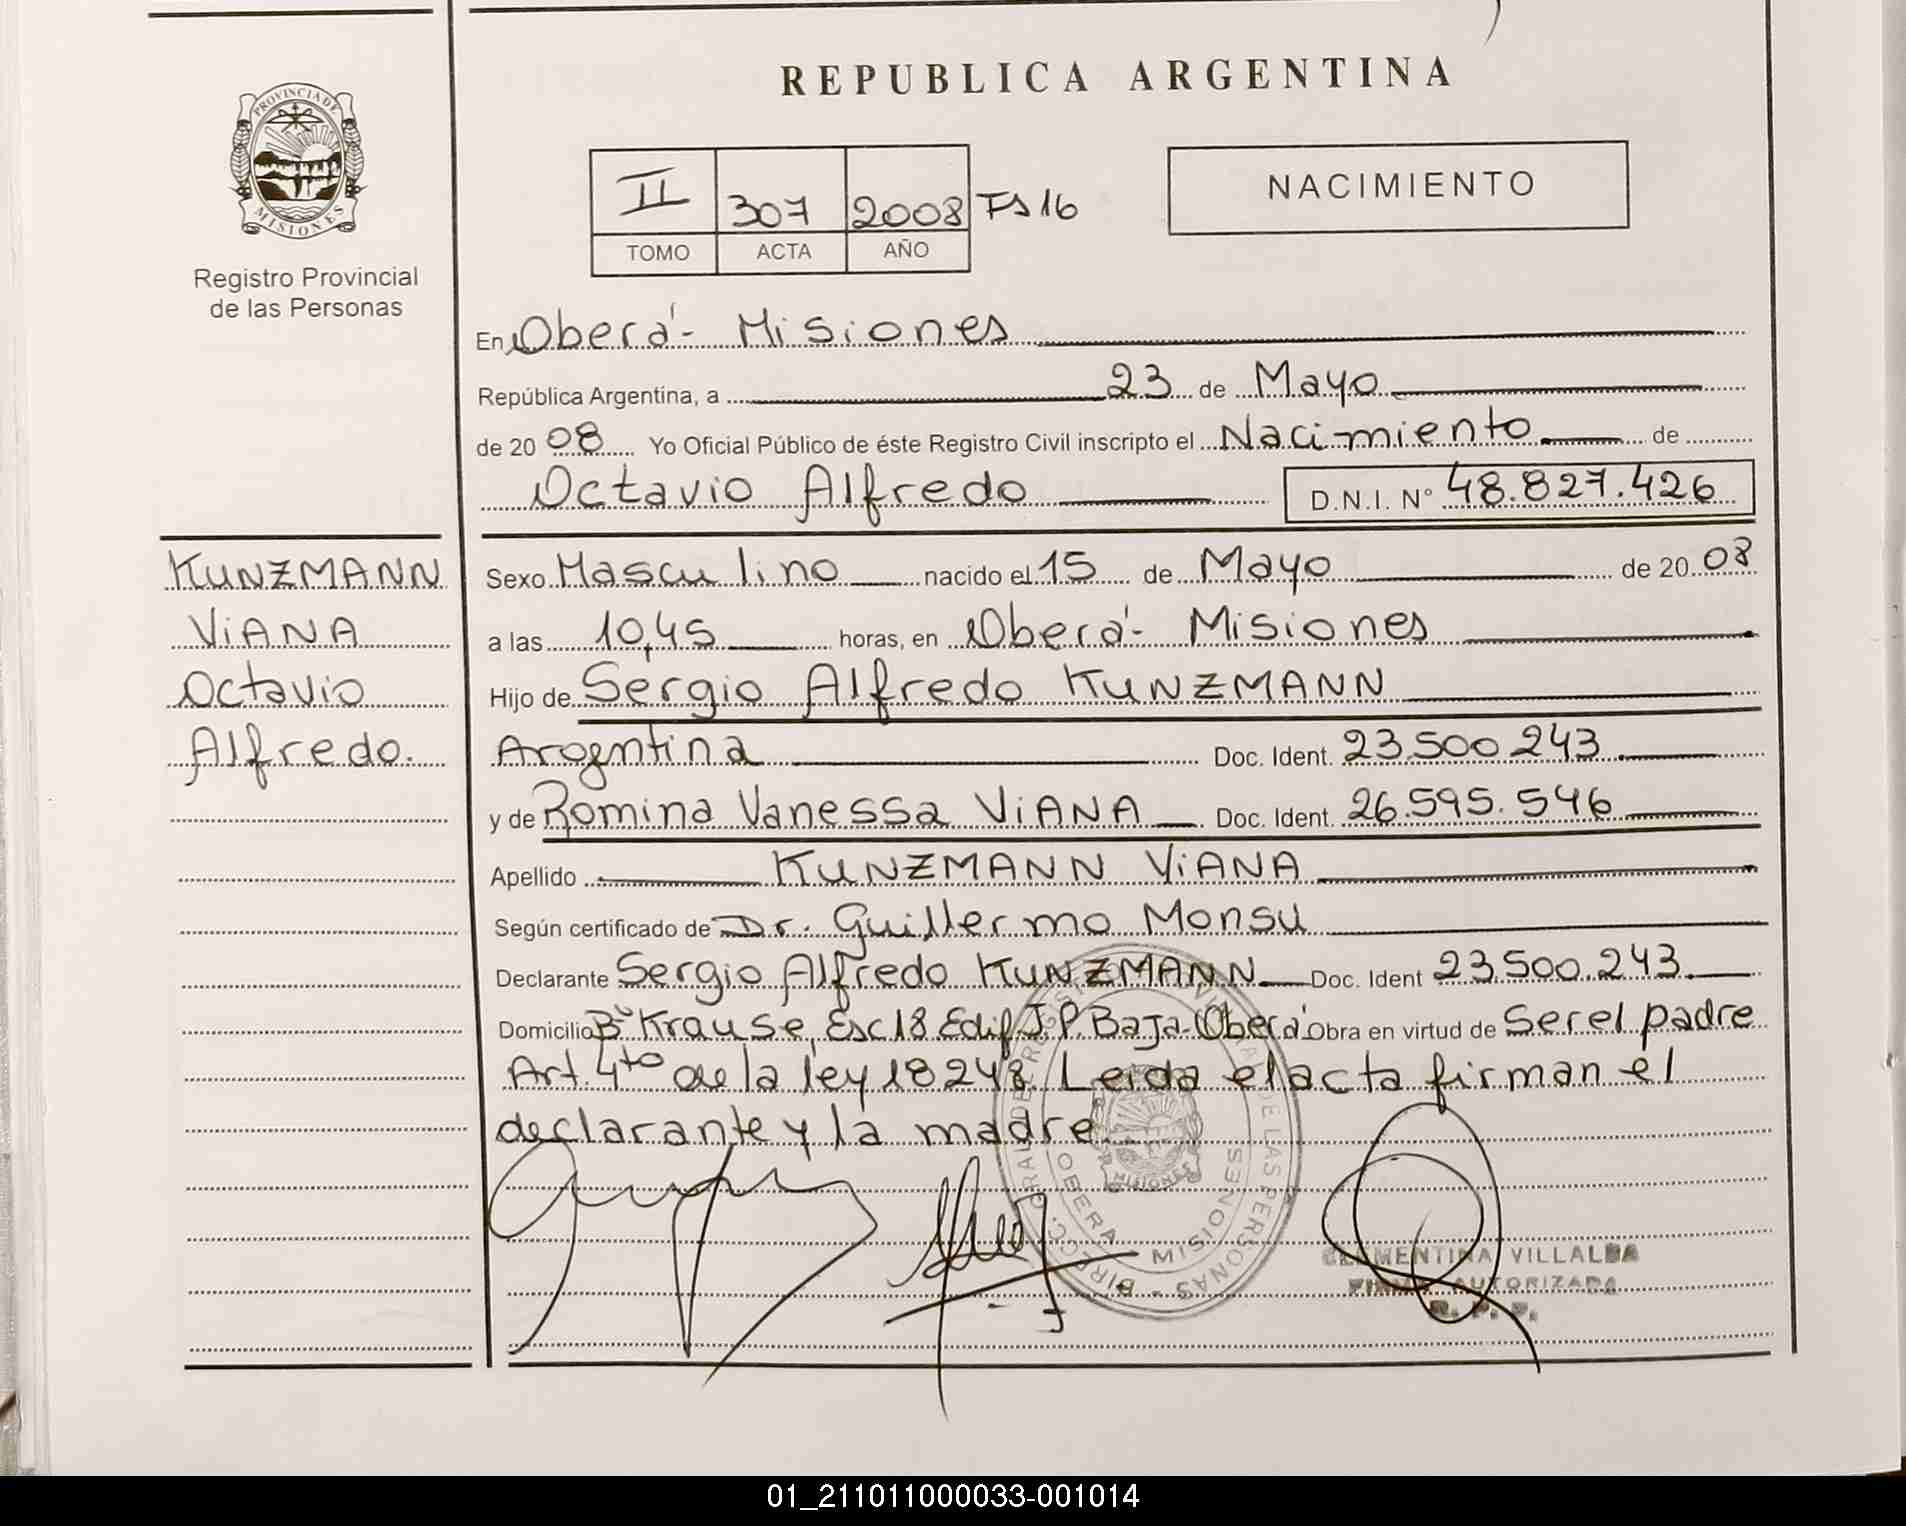 REPUBLICA ARGENTINA
PROVINCIA DE
MISIONES
Registro Provincial
de las Personas
II 307 2008 Fs 16
TOMO ACTA AÑO
NACIMIENTO
En Oberá - Misiones
República Argentina, a 23 de Mayo
de 20 08 Yo Oficial Público de éste Registro Civil inscripto el Nacimiento de
Octavio Alfredo D.N.I. N° 48.827.426
KUNZMANN
VIANA
Octavio
Alfredo.
Sexo Masculino nacido el 15 de Mayo de 20 08
a las 10,45 horas, en Oberá - Misiones
Hijo de Sergio Alfredo KUNZMANN
Argentina Doc. Ident. 23.500.243
y de Romina Vanessa VIANA Doc. Ident. 26.595.546
Apellido KUNZMANN VIANA
Según certificado de Dr. Guillermo Monsu
Declarante Sergio Alfredo KUNZMANN Doc. Ident 23.500.243
Domicilio B° Krause, Esc 18 Edif J.P. Baja - Oberá Obra en virtud de Ser el padre
Art. 4to de la ley 18248. Leida el acta firman el
declarante y la madre.
OBERA MISIONES
CLEMENTINA VILLALBA
FIRMA AUTORIZADA
R. P. P.
01_211011000033-001014